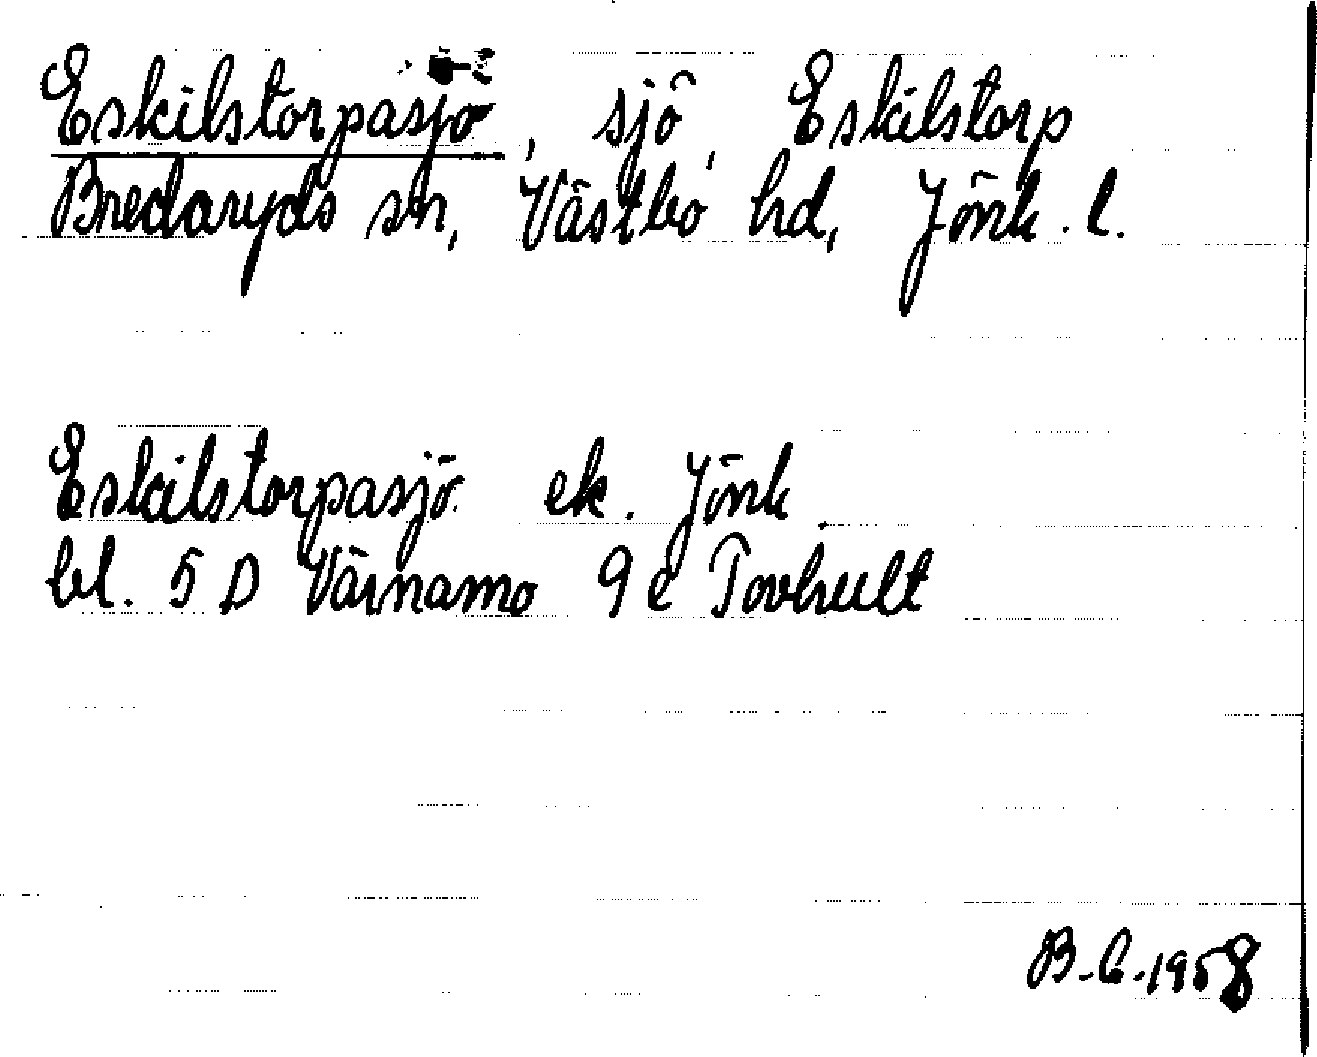 Eskilstorpasjö, sjö, Eskilstorp
Bredaryds sn, Västbo hd, Jönk. l.
Eskilstorpasjö ek. Jönk
bl. 5 D Värnamo 9 e Tovhult
B.G.1958